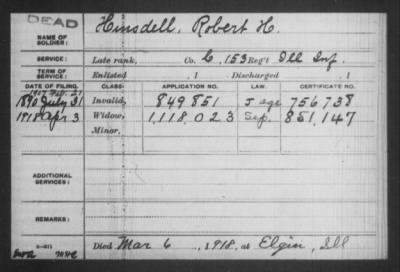 DEAD
NAME OF SOLDIER: Hinsdell, Robert H.
SERVICE: Late rank, Co. C, 153 Reg't Ill Inf.
TERM OF SERVICE: Enlisted , 1 Discharged , 1
DATE OF FILING. CLASS. APPLICATION NO. LAW. CERTIFICATE NO.
1907 Feb. 21
1890 July 31 Invalid, 849 851 J age 756738
1918 Apr 3 Widow, 1,118,023 Sep. 851,147
Minor,
ADDITIONAL SERVICES:
REMARKS:
Died Mar 6 , 1918, at Elgin, Ill